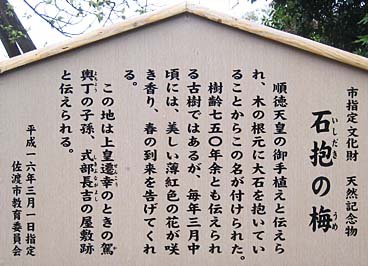 市指定文化財 天然記念物
石抱の梅
いしだき うめ
順徳天皇の御手植えと伝えら
れ、木の根元に大石を抱いてい
ることからこの名が付けられた。
樹齢七五〇年余とも伝えられ
る古樹ではあるが、毎年三月中
頃には、美しい薄紅色の花が咲
き香り、春の到来を告げてくれ
る。
この地は上皇遷幸のときの駕
輿丁の子孫、式部長吉の屋敷跡
と伝えられる。
平成一六年三月一日指定
佐渡市教育委員会